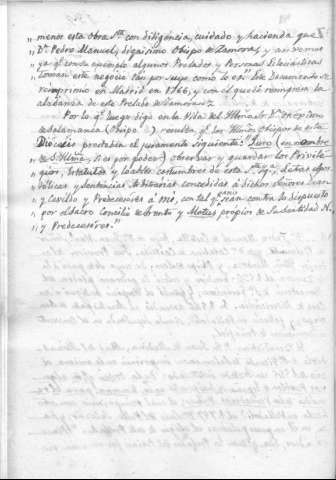 „ menos esta obra Sta. con diligencia, cuidado y hacienda que
„ Dn. Pedro Manuel, dignisimo Obispo de Zamora, y aun vemos
„ ya qe. con su ejemplo algunos Prelados y Personas Eclesiasticas
„ toman este negocio tan por suyo como lo es." Este Documento se
reimprimio en Madrid en 1766, y con el quedó reimpresa la
alabanza de este Prelado de Zamora.
Por lo qe. luego diga en la Vida del Illmo. Sr. Dn.
de Salamanca (Obispo ) resulta qe. los Illmos. Obispos de esta
Diócesis prestaban el juramento siguiente: "Juro (en nombre
„ de S. Illma., si es por poder) observar y guardar los Privile
„ gios, Estatutos y loables costumbres de esta Sta. Iga., Letras Apos
„ tólicas y Sentencias Arbitrarias concedidas á dichos Señores Dean
„ y Cavildo y Predecesores á mio, con tal qe. no sean contra lo dispuesto
„ por el Sacro Concilio de Trento y Motus propios de Su Santidad N.
„ y Predecesores."